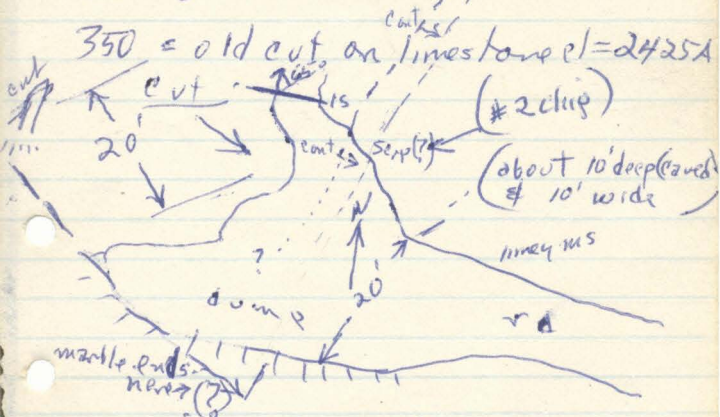 cont
350 = old cut on limestone el=2425A
cut
cut
ls
(#2 chip)
20'
cont
Serp(?)
(about 10' deep (caved)
& 10' wide
N
limey ms
?
20'
dump
rd
marble ends
here → (?)